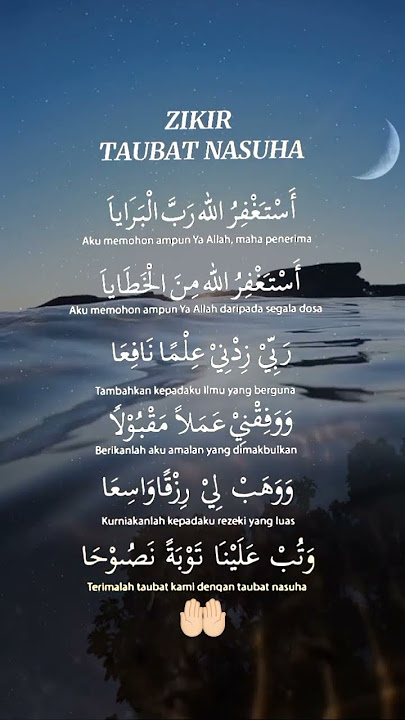 ZIKIR
TAUBAT NASUHA
أَسْتَغْفِرُ الله رَبَّ الْبَرَاياَ
Aku memohon ampun Ya Allah, maha penerima
أَسْتَغْفِرُ الله مِنَ الْخَطَاياَ
Aku memohon ampun Ya Allah daripada segala dosa
رَبِّيْ زِدْنِيْ عِلْمًا نَافِعَا
Tambahkan kepadaku Ilmu yang berguna
وَوَفِقْنِيْ عَمَلاً مَقْبُوْلاً
Berikanlah aku amalan yang dimakbulkan
وَوَهَبْ لِيْ رِزْقًاوَاسِعَا
Kurniakanlah kepadaku rezeki yang luas
وَتُبْ عَلَيْنَا تَوْبَةً نَصُوْحَا
Terimalah taubat kami dengan taubat nasuha